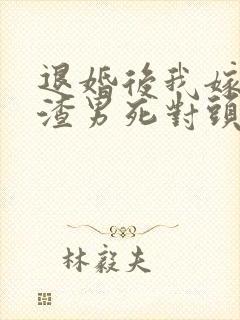 退婚後我嫁
渣男死對頭
林毅夫